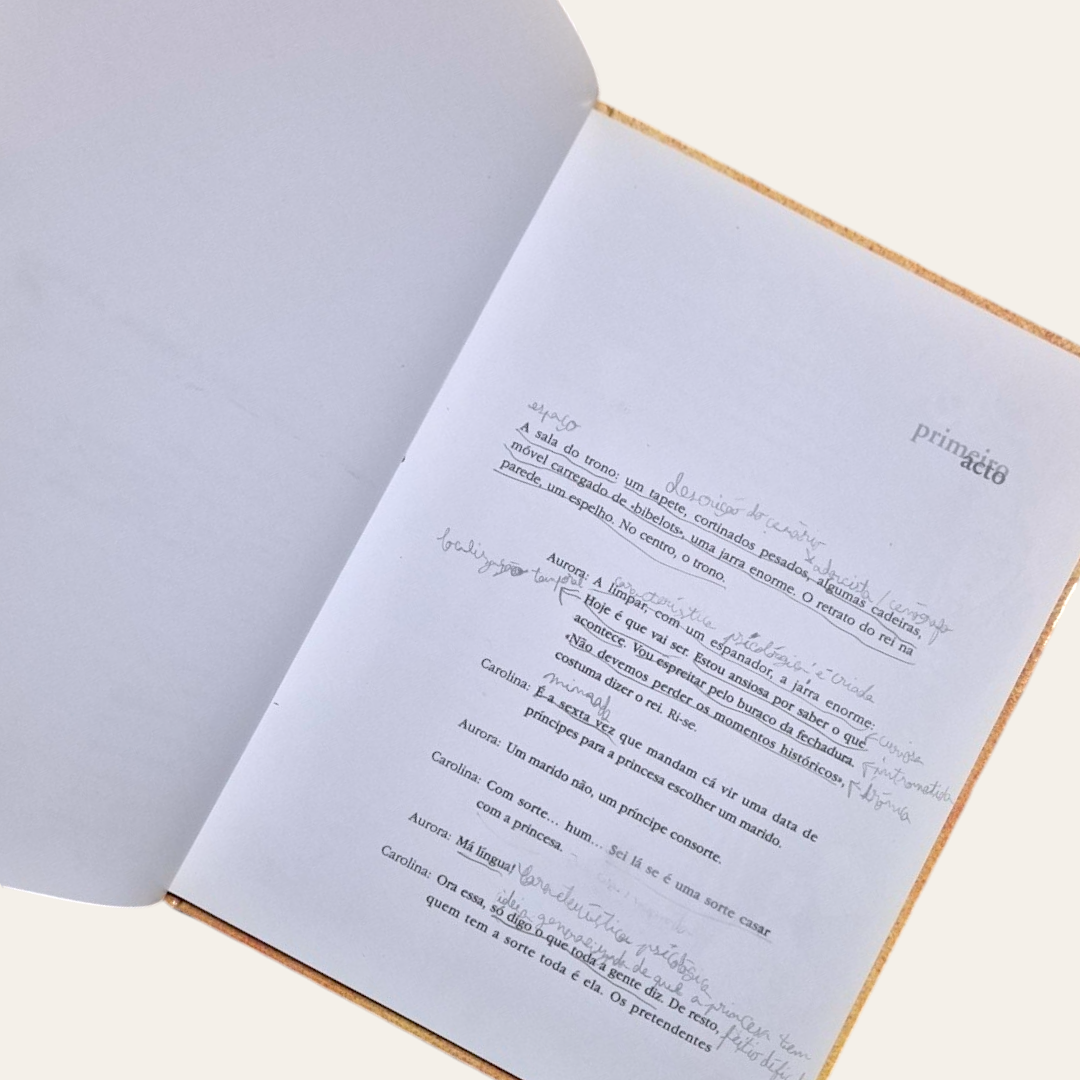 primeiro
acto
espaço
A sala do trono: um tapete, cortinados pesados, algumas cadeiras,
móvel carregado de «bibelots», uma jarra enorme. O retrato do rei na
parede, um espelho. No centro, o trono.
descrição do cenário
aderecista / cenógrafo
localização temporal
Aurora: A limpar, com um espanador, a jarra enorme:
característica psicológica é criada
Hoje é que vai ser. Estou ansiosa por saber o que
acontece. Vou espreitar pelo buraco da fechadura.
«Não devemos perder os momentos históricos»,
costuma dizer o rei. Ri-se.
curiosa
intrometida
irónica
mimada
Carolina: É a sexta vez que mandam cá vir uma data de
príncipes para a princesa escolher um marido.
Aurora: Um marido não, um príncipe consorte.
Carolina: Com sorte... hum... Sei lá se é uma sorte casar
com a princesa.
Aurora: Má língua!
Característica psicológica
Carolina: Ora essa, só digo o que toda a gente diz. De resto,
quem tem a sorte toda é ela. Os pretendentes
ideia generalizada de que a princesa tem
feitio difícil